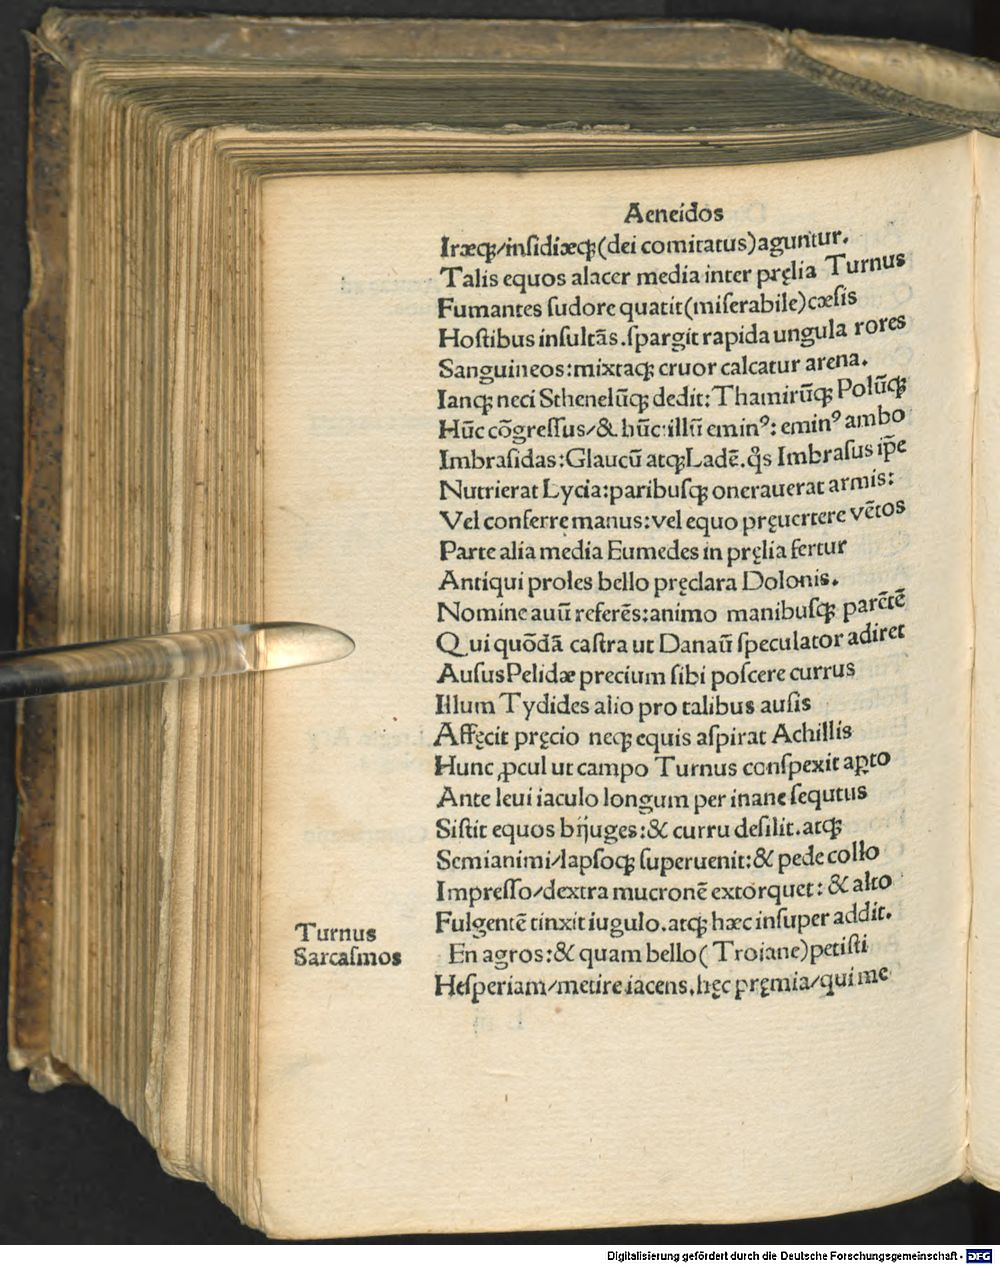 Aeneidos
Iræqꝫ/inſidiæqꝫ(dei comitatus)aguntur.
Talis equos alacer media inter pręlia Turnus
Fumantes ſudore quatit(miſerabile)cæſis
Hoſtibus inſultãs.ſpargit rapida ungula rores
Sanguineos:mixtaqꝫ cruor calcatur arena.
Ianqꝫ neci Sthenelũqꝫ dedit: Thamirũqꝫ Polũqꝫ
Hũc cõgreſſus/& hũc:illũ eminꝰ: eminꝰ ambo
Imbraſidas:Glaucũ atqꝫ Ladẽ.q̊s Imbraſus ip̃e
Nutrierat Lycia:paribuſqꝫ onerauerat armis:
Vel conferre manus:vel equo pręuertere vẽtos
Parte alia media Eumedes in pręlia fertur
Antiqui proles bello pręclara Dolonis.
Nomine auũ referẽs:animo manibuſqꝫ parẽtẽ
Qui quõdã caſtra ut Danaũ ſpeculator adiret
Auſus Pelidæ precium ſibi poſcere currus
Illum Tydides alio pro talibus auſis
Affęcit pręcio neqꝫ equis aſpirat Achillis
Hunc ꝓcul ut campo Turnus conſpexit aꝑto
Ante leui iaculo longum per inane ſequtus
Siſtit equos bijuges:& curru deſilit.atqꝫ
Semianimi/lapſoqꝫ ſuperuenit:& pede collo
Impreſſo/dextra mucronẽ extorquet: & alto
Fulgentẽ tinxit iugulo.atqꝫ hæc inſuper addit.
Turnus
Sarcaſmos
En agros:& quam bello(Troiane)petiſti
Heſperiam/metire iacens.hęc pręmia/qui me
Digitalisierung gefördert durch die Deutsche Forschungsgemeinschaft - DFG